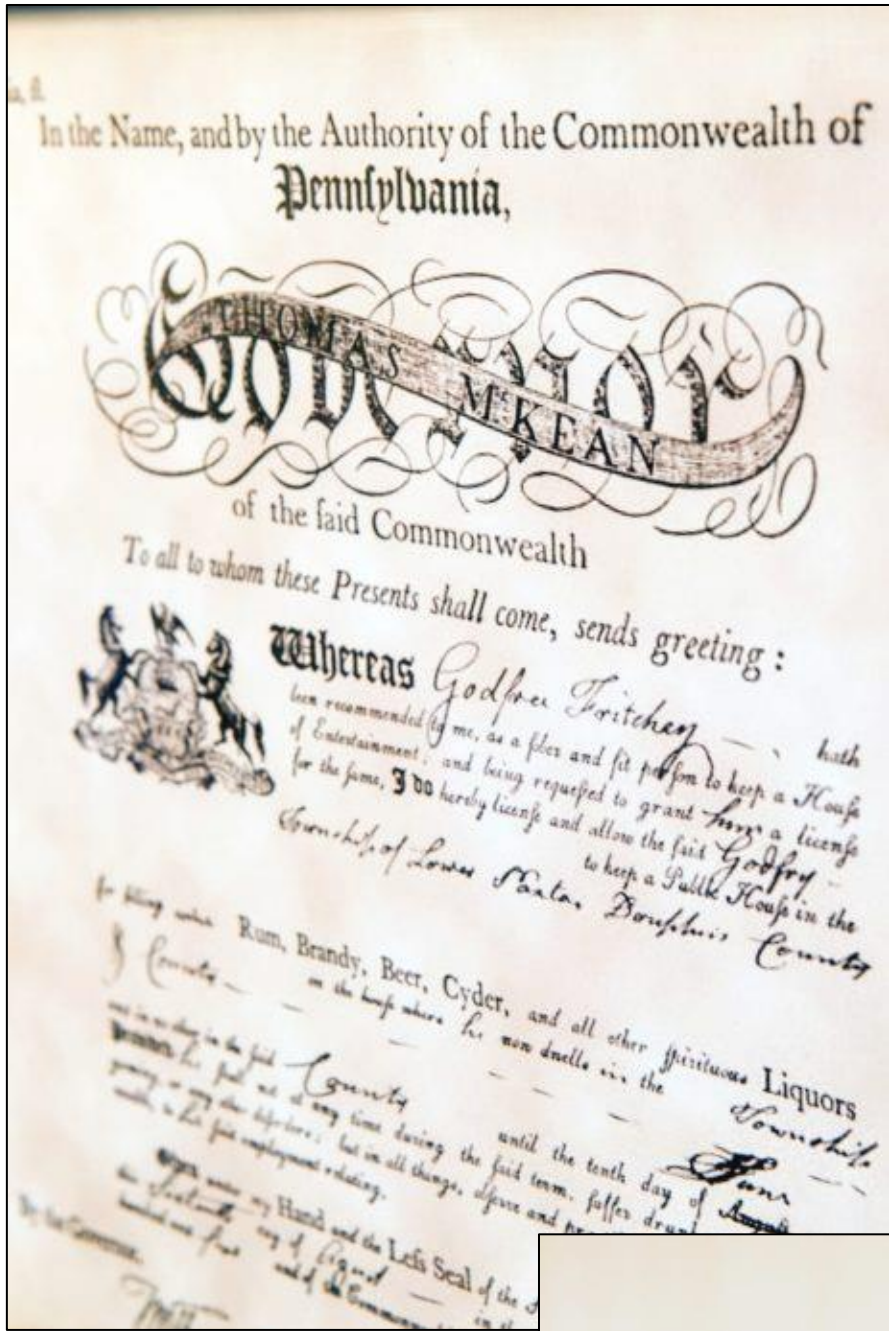 In the Name, and by the Authority of the Commonwealth of
Pennſylvania,
THOMAS McKEAN
Governor
of the ſaid Commonwealth
To all to whom these Presents shall come, sends greeting :
Whereas Godfree Fritchey hath
been recommended to me, as a ſober and fit perſon to keep a Houſe
of Entertainment; and being requeſted to grant him a licenſe
for the ſame, I do hereby licenſe and allow the ſaid Godfrey
to keep a Public Houſe in the
Township of Lower Paxton Dauphin County
for ſelling Rum, Brandy, Beer, Cyder, and all other ſpirituous Liquors
in the houſe where he now dwells in the Township
& County
and in no other in the ſaid County until the tenth day of June August
he ſhall not at any time during the ſaid term, ſuffer
gaming, or any other diſorders; but in all things, obſerve and
to his ſaid employment relating.
under my Hand and the Leſs Seal of the
day of August in the
hundred and and of the
By the Governor.